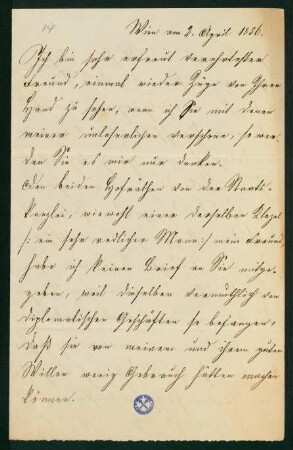 14
Wien am 2. April 1856.
Ich bin sehr erfreut verehrtester
Freund, einmal wieder Züge von Ihrer
Hand zu sehen, wenn ich Sie mit denen
meiner unleserlichen verschone, so wer-
den Sie es mir nur danken.
Den beiden Hofräthen von der Staats-
kanzlei, wiewohl einer derselben
/: ein sehr redlicher Mann :/ mein Freund,
habe ich keinen Brief an Sie mitge-
geben, weil dieselben vermuthlich von
diplomatischen Geschäften so befangen,
daß sie von meinem und ihrem guten
Willen wenig Gebrauch hätten machen
können.